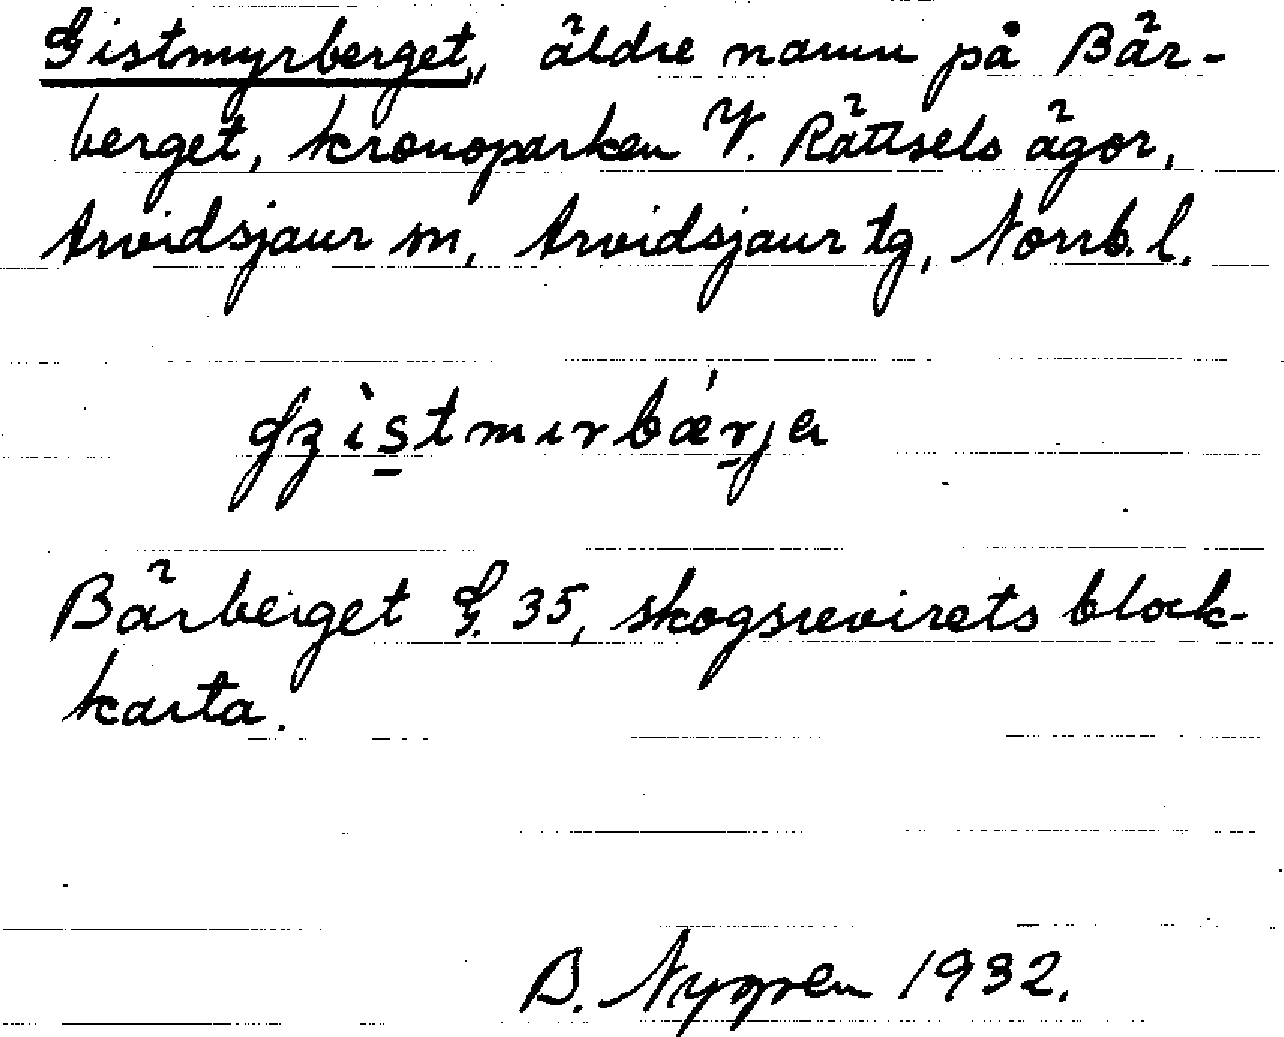 Gistmyrberget, äldre namn på Bär-
berget, kronoparken V. Rättsels ägor,
Arvidsjaur sn, Arvidsjaur tg, Norrb. l.
Bärberget G. 35, skogsrevirets block-
karta.
B. Nygren 1932.